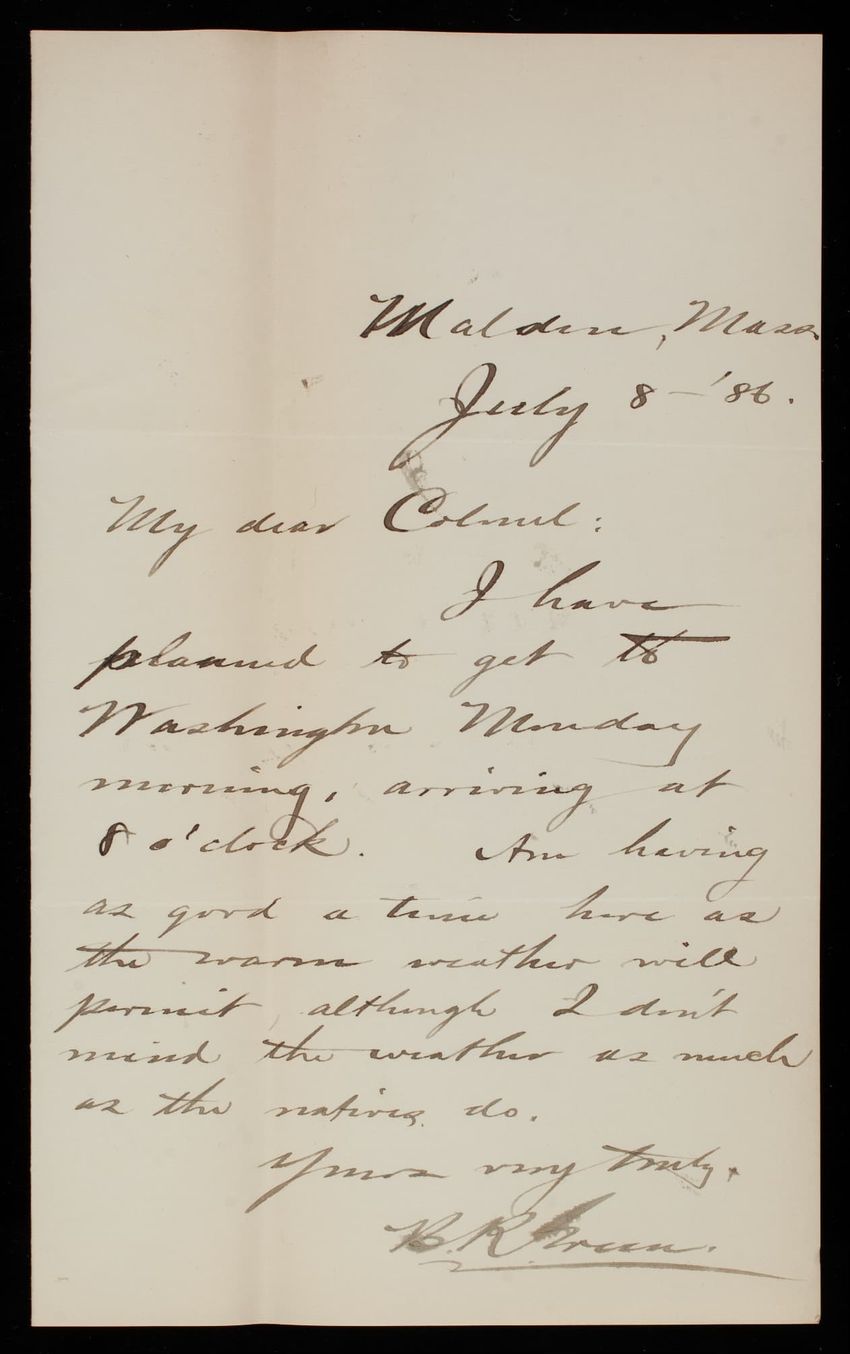 Malden, Mass.
July 8 - '86.
My dear Colonel:
I have
planned to get to
Washington Monday
morning, arriving at
8 o'clock. Am having
as good a time here as
the warm weather will
permit, although I don't
mind the weather as much
as the natives do.
Yours very truly,
B. R. Green.